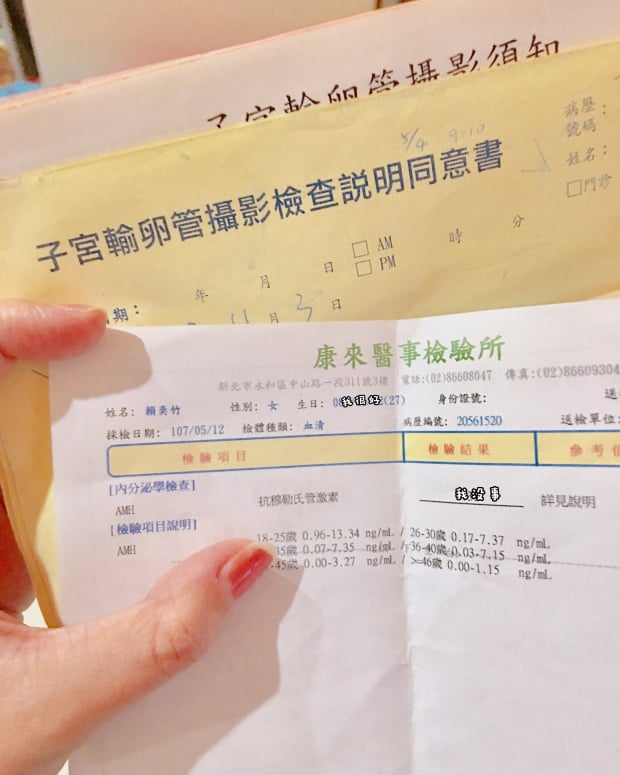 子宮輸卵管攝影須知
5/4 9:10
病歷號碼：
姓名：
□門診
子宮輸卵管攝影檢查說明同意書
年 月 日 □AM □PM 時 分
期：
月 3 日
康來醫事檢驗所
新北市永和區中山路一段311號3樓 電話:(02)86608047 傳真:(02)8660930
姓名: 賴奕竹 性別: 女 生日: 我很好(27) 身份證號: 送
採檢日期: 107/05/12 檢體種類: 血清 病歷編號: 20561520 送檢單位:
檢驗項目 檢驗結果 參考
[內分泌學檢查]
AMH 抗穆勒氏管激素 我沒事 詳見說明
[檢驗項目說明]
AMH 18-25歲 0.96-13.34 ng/mL / 26-30歲 0.17-7.37 ng/mL
35歲 0.07-7.35 ng/mL / 36-40歲 0.03-7.15 ng/mL
-45歲 0.00-3.27 ng/mL / >=46歲 0.00-1.15 ng/mL